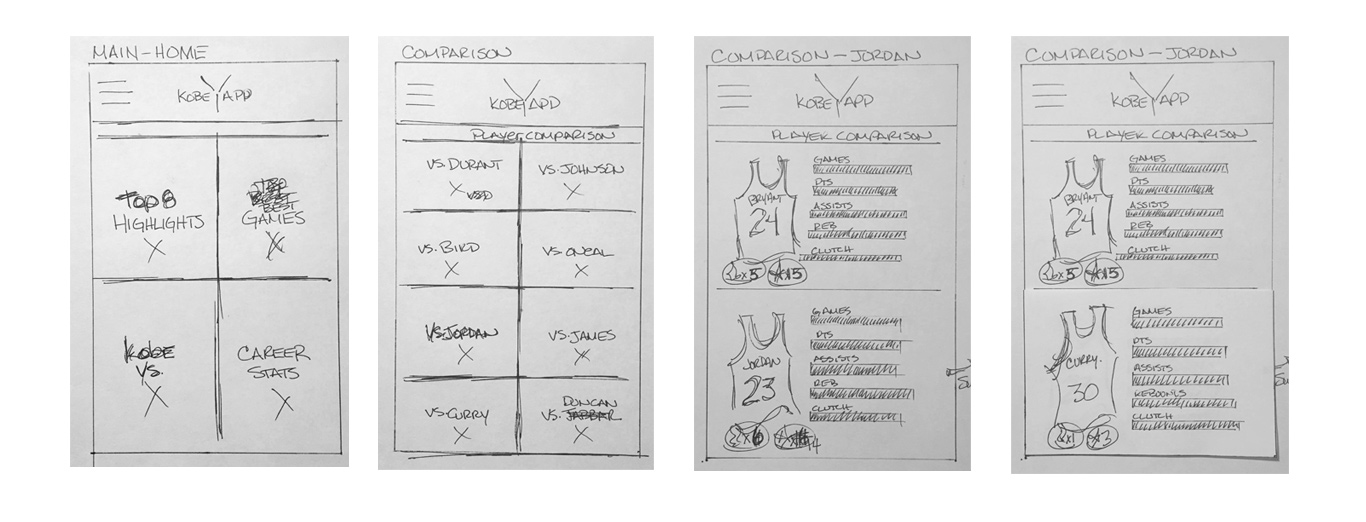 MAIN-HOME
KOBE APP
TOP 8
HIGHLIGHTS
BEST
GAMES
KOBE
VS.
CAREER
STATS
COMPARISON
KOBE APP
PLAYER COMPARISON
VS. DURANT
VS. JOHNSON
VS. BIRD
VS. ONEAL
VS. JORDAN
VS. JAMES
VS. CURRY
DUNCAN
VS. JABBAR
COMPARISON - JORDAN
KOBE APP
PLAYER COMPARISON
BRYANT
24
GAMES
PTS
ASSISTS
REB
CLUTCH
x5
15
JORDAN
23
GAMES
PTS
ASSISTS
REB
CLUTCH
x6
14
COMPARISON - JORDAN
KOBE APP
PLAYER COMPARISON
BRYANT
24
GAMES
PTS
ASSISTS
REB
CLUTCH
x5
15
CURRY
30
GAMES
PTS
ASSISTS
REBOUNDS
CLUTCH
x1
3